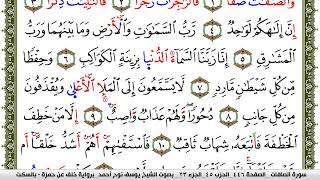 وَٱلصَّٰٓفَّٰتِ صَفًّا ١ فَٱلزَّٰجِرَٰتِ زَجْرًا ٢ فَٱلتَّٰلِيَٰتِ ذِكْرًا ٣
إِنَّ إِلَٰهَكُمْ لَوَٰحِدٌ ٤ رَّبُّ ٱلسَّمَٰوَٰتِ وَٱلْأَرْضِ وَمَا بَيْنَهُمَا وَرَبُّ
ٱلْمَشَٰرِقِ ٥ إِنَّا زَيَّنَّا ٱلسَّمَآءَ ٱلدُّنْيَا بِزِينَةٍ ٱلْكَوَاكِبِ ٦ وَحِفْظًا
مِّن كُلِّ شَيْطَٰنٍ مَّارِدٍ ٧ لَّا يَسَّمَّعُونَ إِلَى ٱلْمَلَإِ ٱلْأَعْلَىٰ وَيُقْذَفُونَ
مِن كُلِّ جَانِبٍ ٨ دُحُورًا وَلَهُمْ عَذَابٌ وَاصِبٌ ٩ إِلَّا مَنْ خَطِفَ
ٱلْخَطْفَةَ فَأَتْبَعَهُۥ شِهَابٌ ثَاقِبٌ ١٠ فَٱسْتَفْتِهِمْ أَهُمْ أَشَدُّ خَلْقًا أَم
سورة الصافات الصفحة ٤٤٦ الحزب ٤٥ الجزء ٢٣ بصوت الشيخ يوسف نوح أحمد برواية خلف عن حمزة - بالسكت